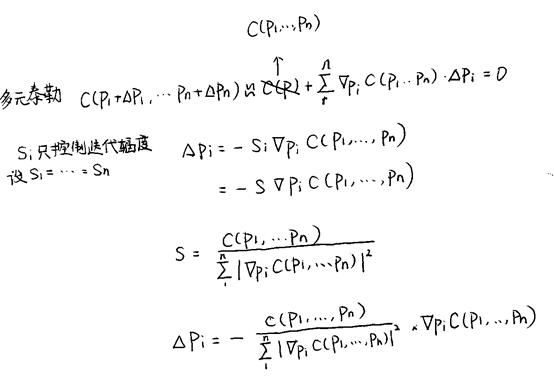 C(P₁,...,Pₙ)
↑
多元泰勒 C(P₁+ΔP₁,...Pₙ+ΔPₙ) ≈ C(P) + Σ₁ⁿ ∇Pᵢ C(P₁...Pₙ)·ΔPᵢ = 0
Sᵢ只控制迭代幅度 ΔPᵢ = - Sᵢ ∇Pᵢ C(P₁,...,Pₙ)
设 S₁=...=Sₙ = - S ∇Pᵢ C(P₁,...,Pₙ)
S = C(P₁,...Pₙ) / Σ₁ⁿ |∇Pᵢ C(P₁,...Pₙ)|²
ΔPᵢ = - C(P₁,...,Pₙ) / Σ₁ⁿ |∇Pᵢ C(P₁,...,Pₙ)|² · ∇Pᵢ C(P₁,...,Pₙ)